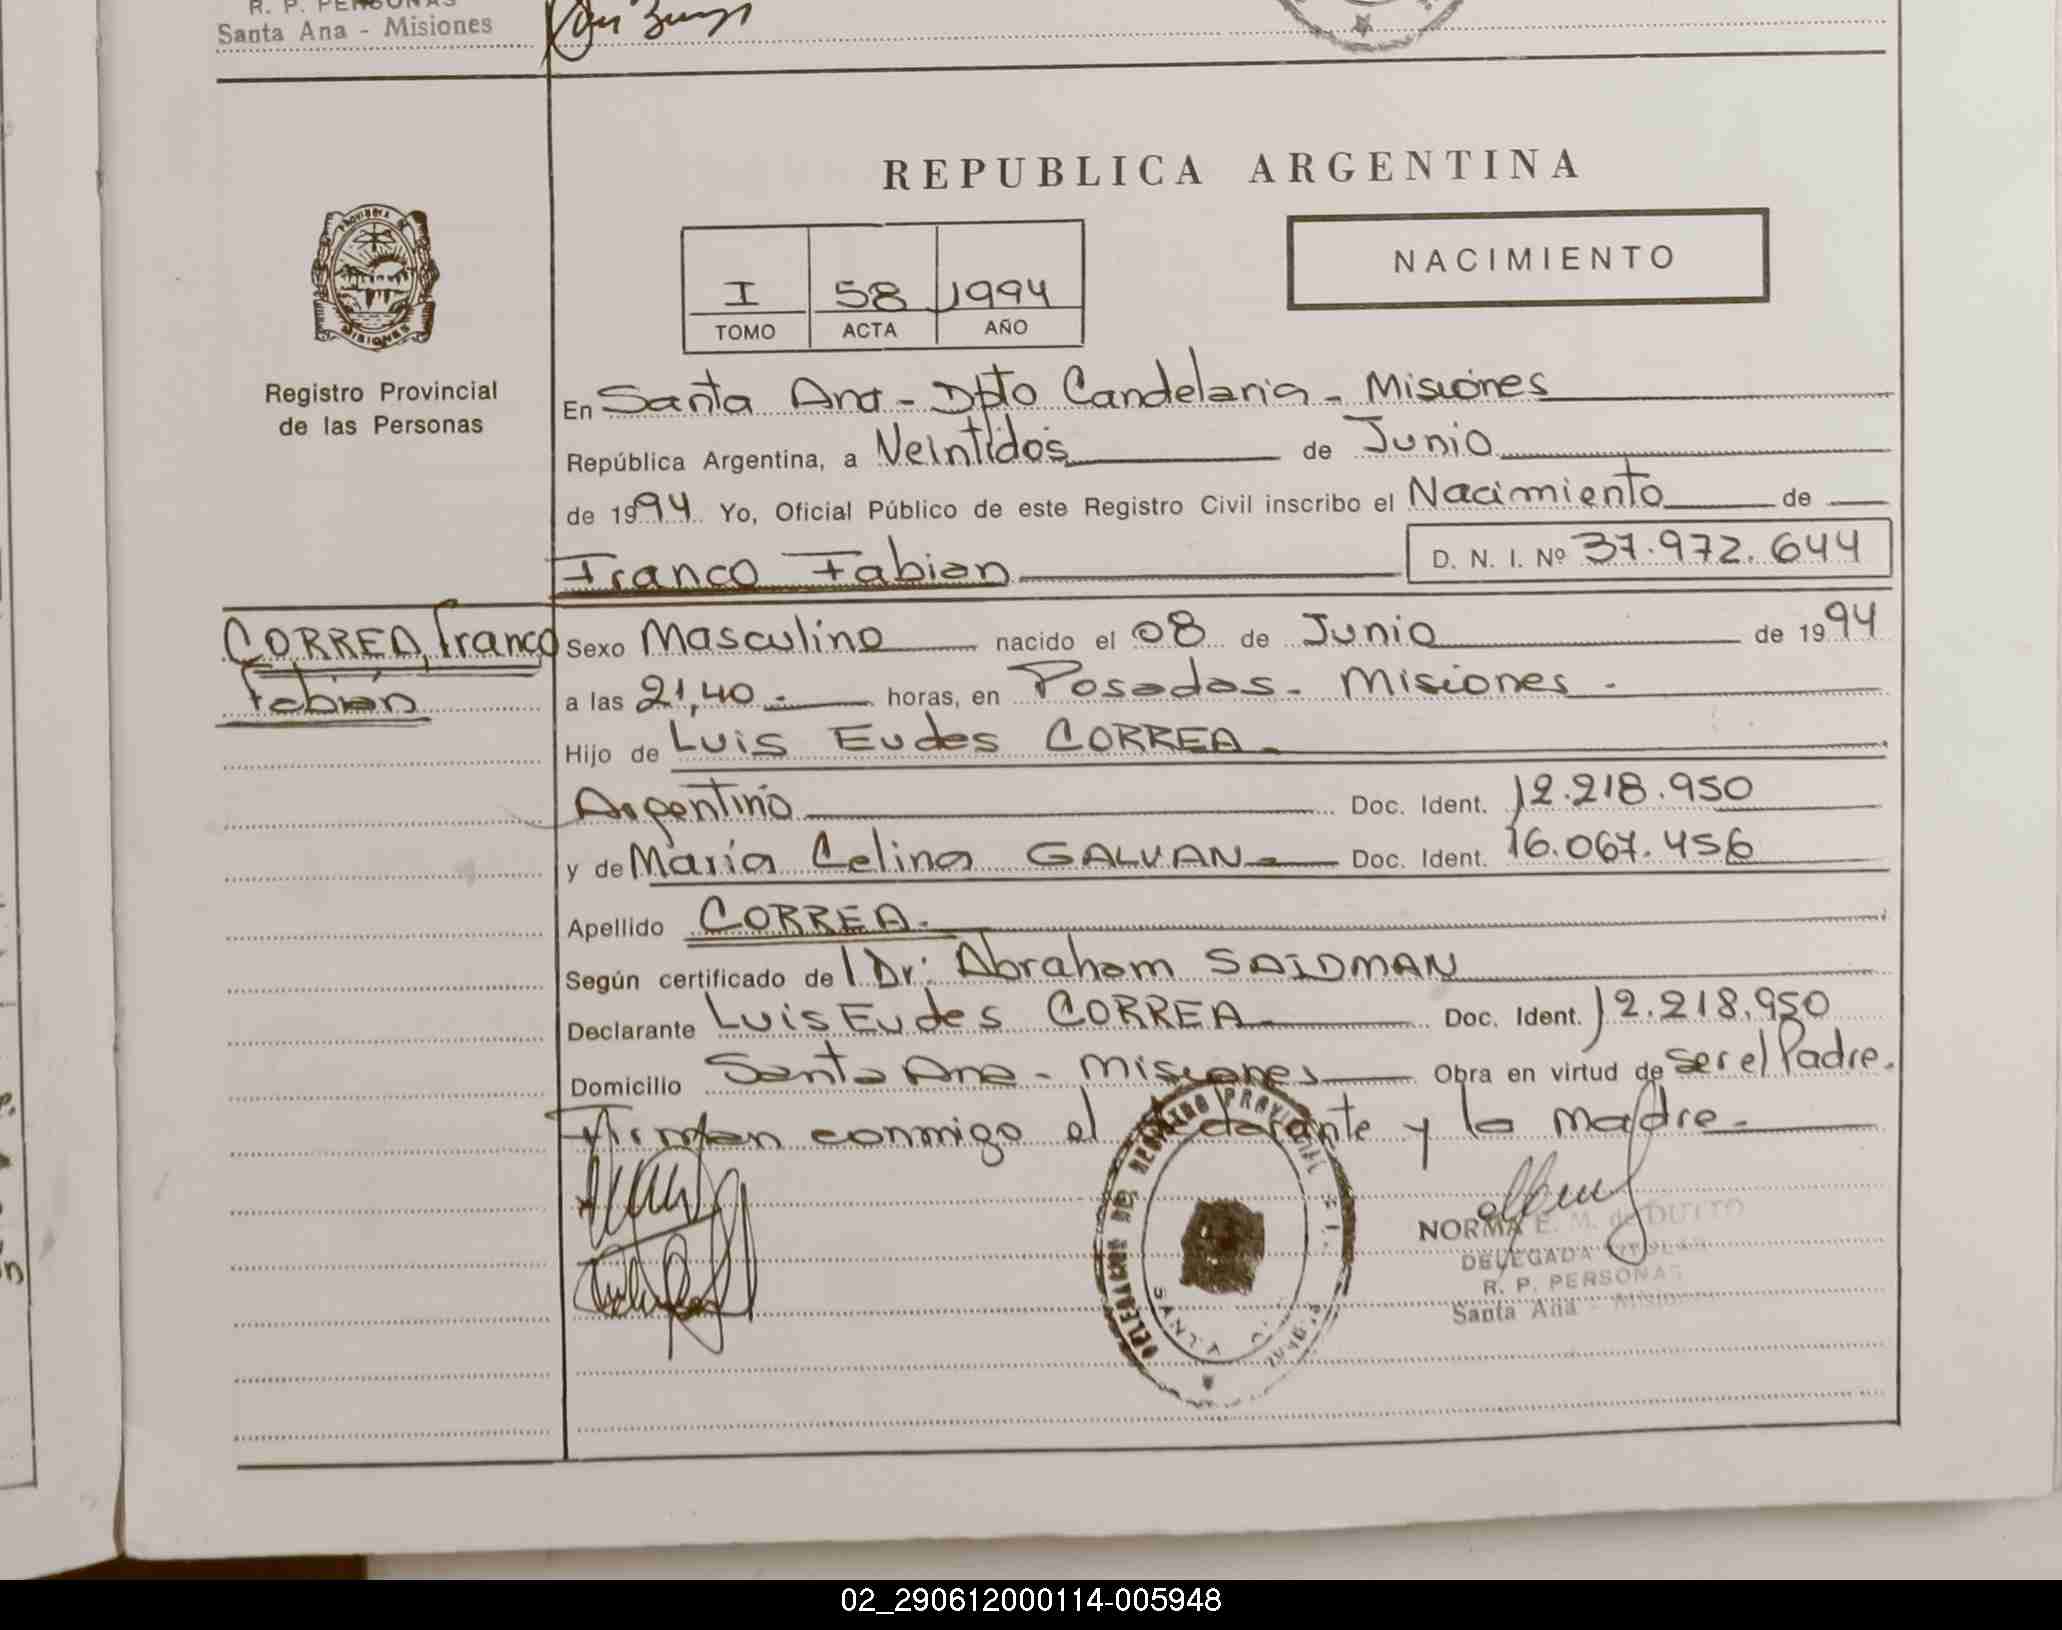 R. P. PERSONAS
Santa Ana - Misiones
REPUBLICA ARGENTINA
NACIMIENTO
I 58 1994
TOMO ACTA AÑO
PROVINCIA DE
MISIONES
Registro Provincial
de las Personas
En Santa Ana - Dpto Candelaria - Misiones
República Argentina, a Veintidós de Junio
de 1994 Yo, Oficial Público de este Registro Civil inscribo el Nacimiento de
Franco Fabian D. N. I. Nº 37.972.644
CORREA, Franco
Fabián
Sexo Masculino nacido el 08 de Junio de 1994
a las 21,40.- horas, en Posadas - Misiones -
Hijo de Luis Eudes CORREA -
Argentino Doc. Ident. 12.218.950
y de María Celina GALVAN - Doc. Ident. 16.067.456
Apellido CORREA.-
Según certificado de l Dr: Abraham SAIDMAN
Declarante Luis Eudes CORREA - Doc. Ident. 12.218.950
Domicilio Santa Ana - Misiones Obra en virtud de ser el Padre.
Firman conmigo el declarante y la madre.-
REGISTRO PROVINCIAL
SANTA
NORMA E. M. de DUTTO
DELEGADA TITULAR
R. P. PERSONAS
Santa Ana - Misiones
02_290612000114-005948